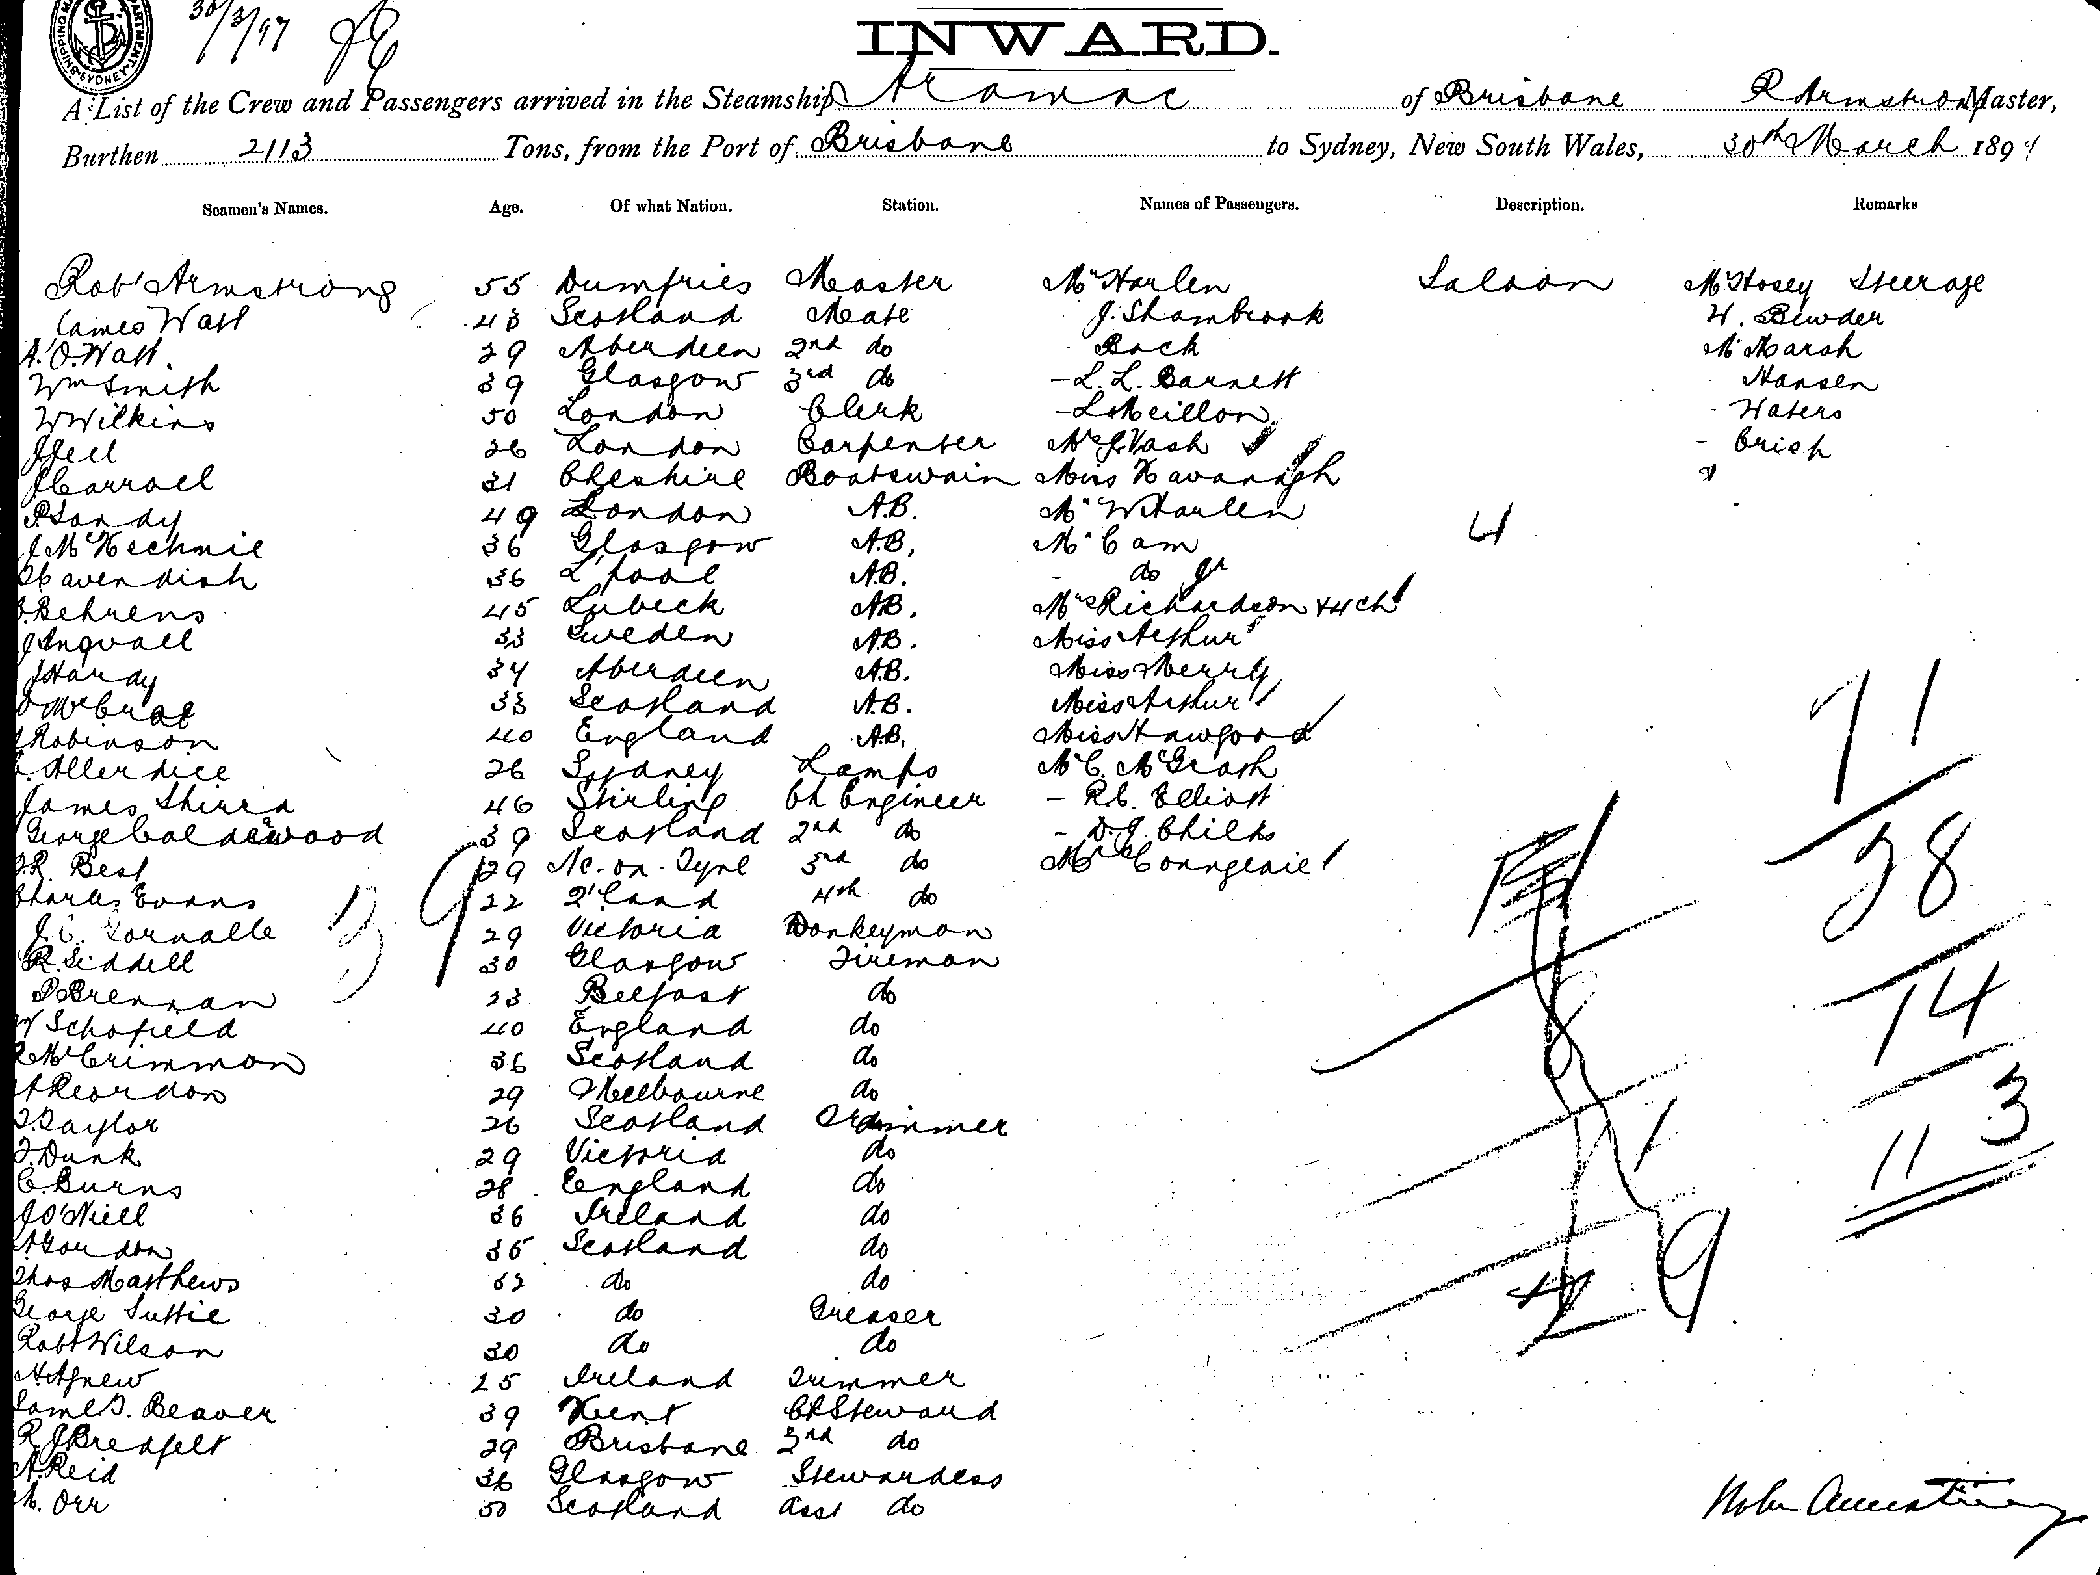 30/3/97
INWARD.
A List of the Crew and Passengers arrived in the Steamship Aramac of Brisbane R Armstrong Master,
Burthen 2113 Tons, from the Port of Brisbane to Sydney, New South Wales, 30th March 1897
Seamen's Names. Age. Of what Nation. Station. Names of Passengers. Description. Remarks
Robt Armstrong 55 Dumfries Master Mr Harlen Saloon Mr Hosey Steerage
James Watt 43 Scotland Mate J. Shambrook H. Bewder
A. O. Watt 29 Aberdeen 2nd do Rock Mr Marsh
Wm Smith 39 Glasgow 3rd do - L. L. Barnett Hansen
W Wilkins 50 London Clerk - L Meillon - Waters
J Jell 26 London Carpenter Mrs J Vash - Crish
J Carroll 31 Cheshire Boatswain Miss Kavanagh
P Landy 49 London A.B. Mr W Harlen
J McKechnie 36 Glasgow A.B. Mr Cam 4
Cavendish 36 L'pool A.B. - do Jr
Behrens 45 Lubeck A.B. Mrs Richardson + 4 ch
J Ingvall 33 Sweden A.B. Miss Arthur
J Hardy 34 Aberdeen A.B. Miss Merry
McCrae 33 Scotland A.B. Miss Arthur
J Robinson 40 England A.B. Miss Hawgood
Allerdice 26 Sydney Lamps Mr C. McGrath
James Shirra 46 Stirling Ch Engineer - R.C. Elliott
George Calderwood 39 Scotland 2nd do - D. J. Chilks
J.R. Best 29 Nc. on. Tyne 3rd do
Charles Evans 22 Q'land 4th do
J. C. Gornalle 29 Victoria Donkeyman
R. Siddell 30 Glasgow Fireman
P Brennan 23 Belfast do
W Schofield 40 England do
R McCrimmon 36 Scotland do
A Reordon 29 Melbourne do
T. Taylor 26 Scotland Trimmer
J. Dunk 29 Victoria do
C. Burns 28 England do
J O'Niell 36 Ireland do
A Gordon 35 Scotland do
Thos Matthews 32 do do
George Suttie 30 do Greaser
Robt Wilson 30 do do
H Agnew 25 Ireland Trimmer
James D. Beaver 39 Kent Ch Steward
R J Bredfelt 29 Brisbane 2nd do
A Reid 36 Glasgow Stewardess
M. Orr 50 Scotland asst do
71
38
74
113
9
Robt Armstrong